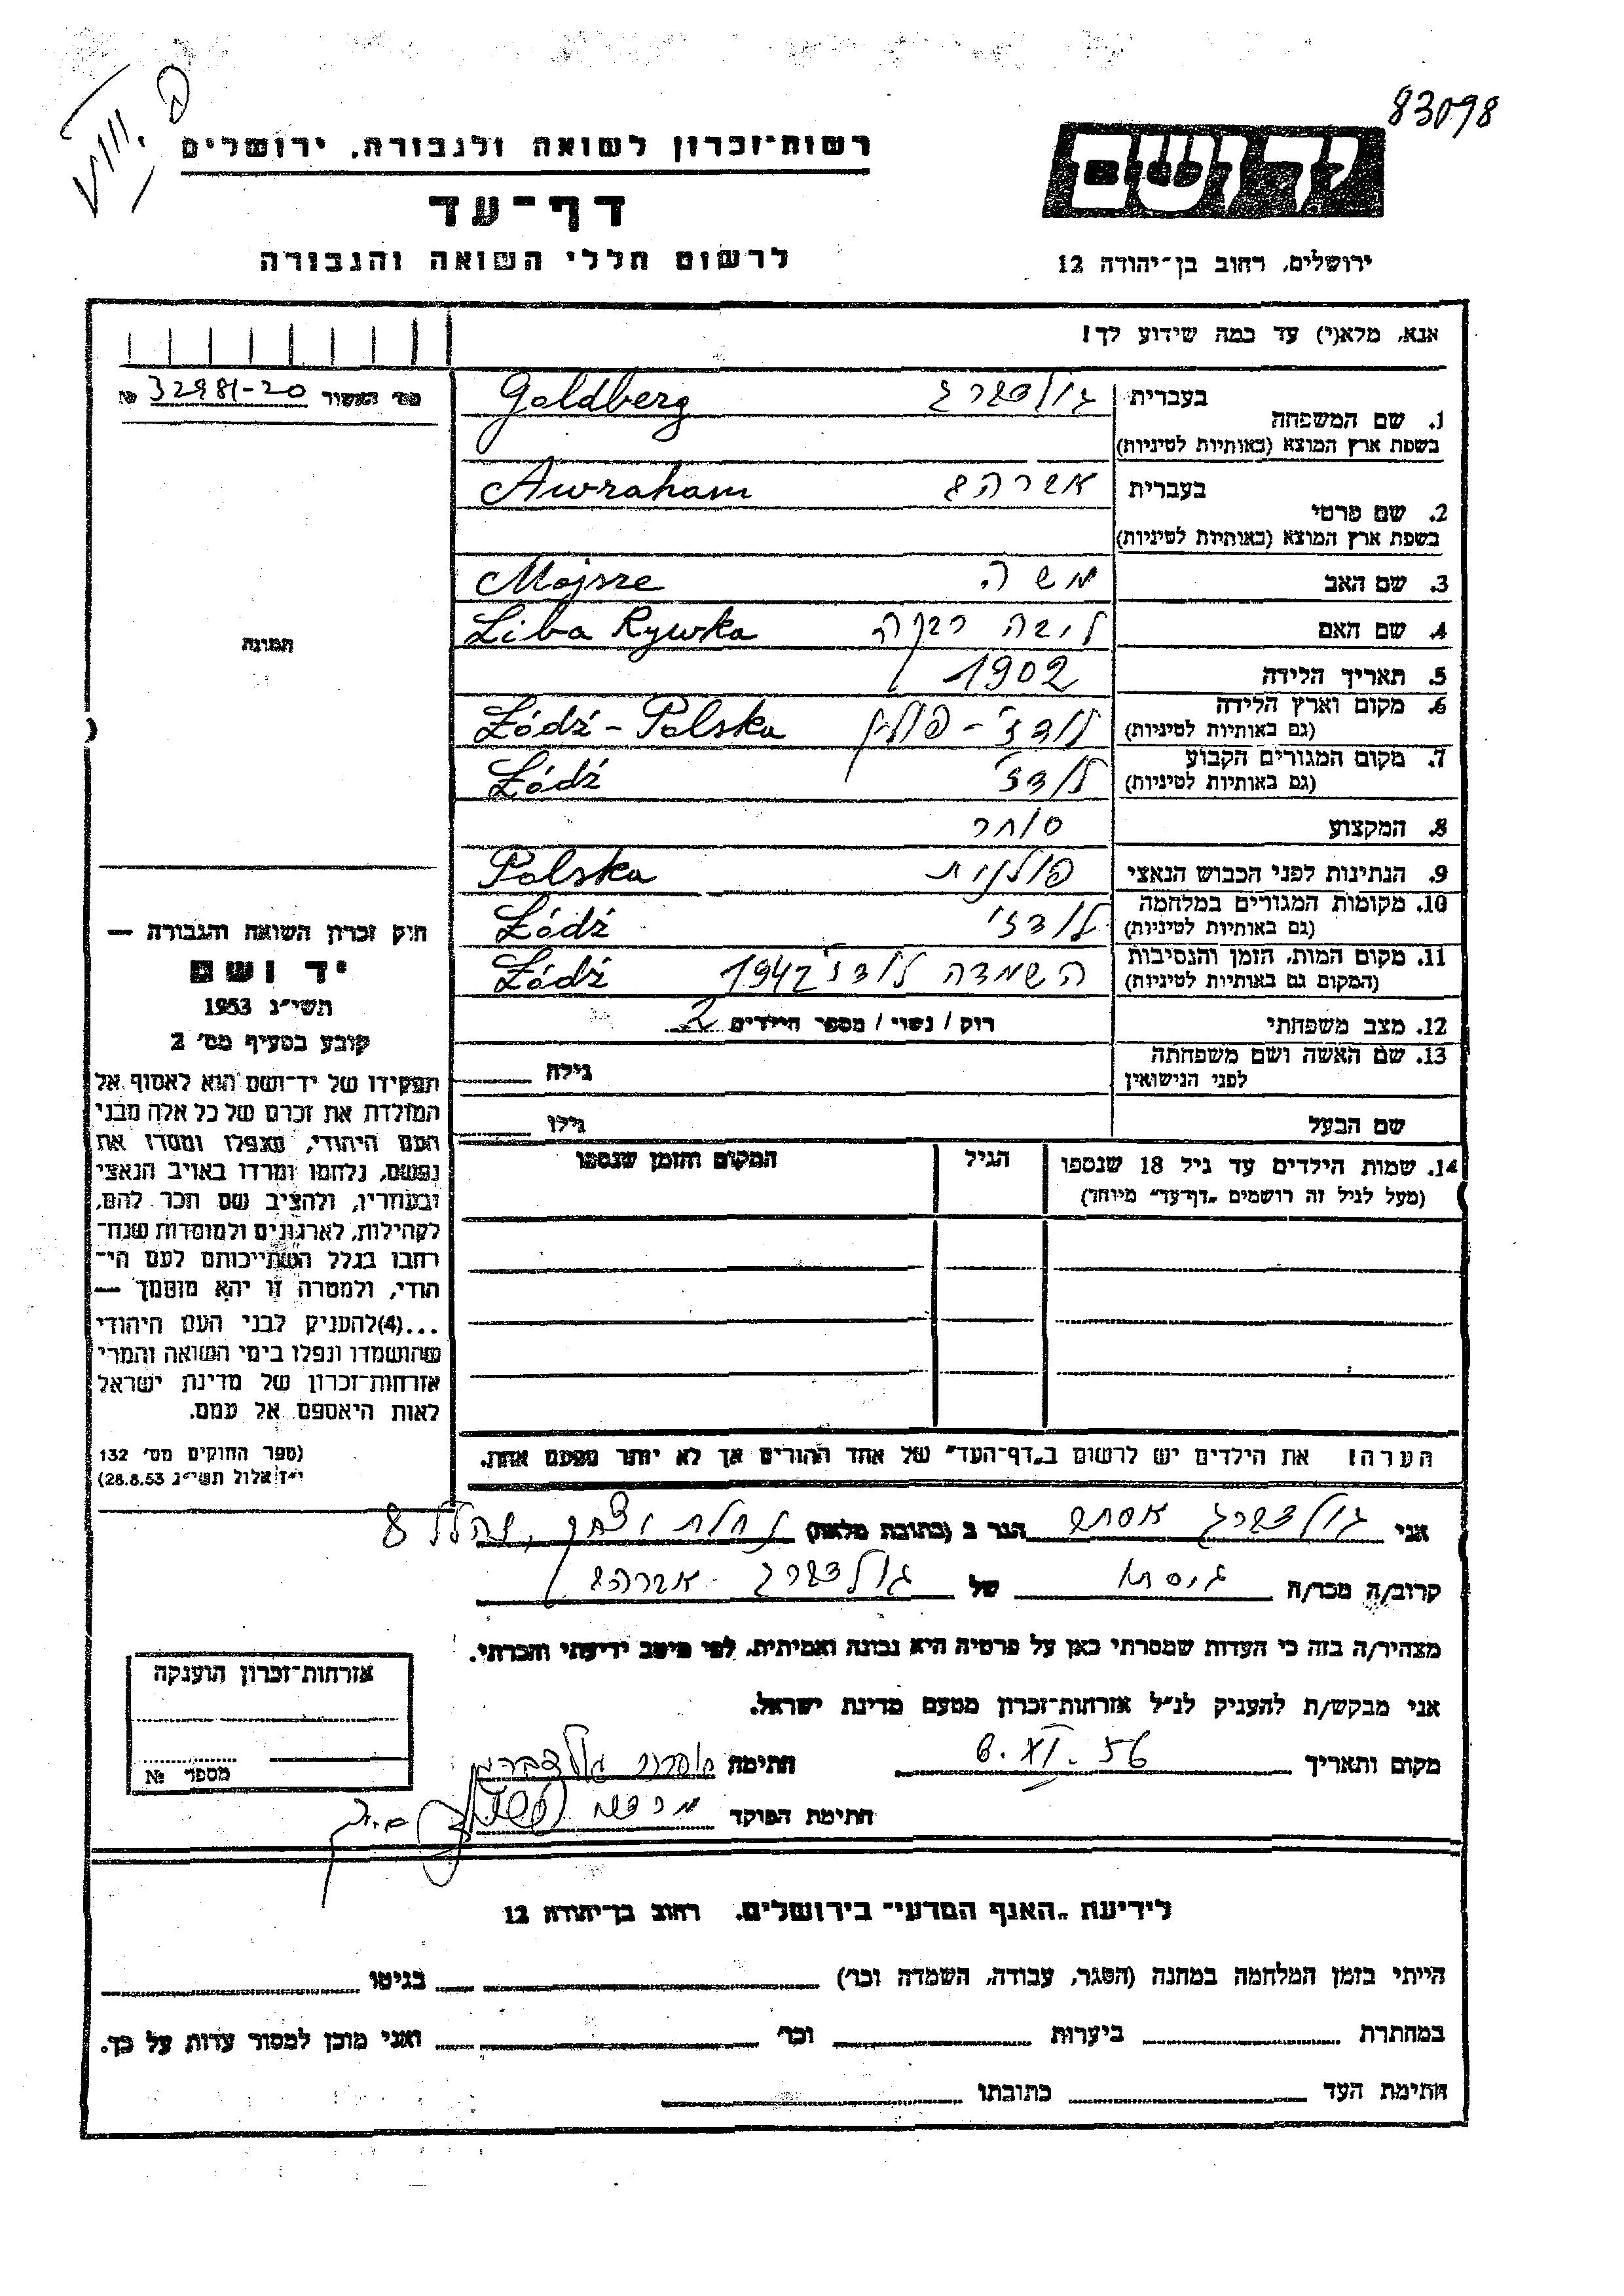 83098
רשות־זכרון לשואה ולגבורה, ירושלים
יד ושם
דף־עד
לרשום חללי השואה והגבורה
ירושלים, רחוב בן־יהודה 12
אנא, מלא(י) עד כמה שידוע לך!
מס' האשור № 32981-20
1. שם המשפחה
בעברית גולדברג Goldberg
בשפת ארץ המוצא (באותיות לטיניות)
2. שם פרטי
בעברית אברהם Awraham
בשפת ארץ המוצא (באותיות לטיניות)
3. שם האב משה Mojsze
4. שם האם ליבה רבקה Liba Rywka
5. תאריך הלידה 1902
6. מקום וארץ הלידה לודז' - פולין Łódź - Polska
(גם באותיות לטיניות)
7. מקום המגורים הקבוע לודז' Łódź
(גם באותיות לטיניות)
8. המקצוע סוחר
9. הנתינות לפני הכבוש הנאצי פולנית Polska
10. מקומות המגורים במלחמה לודז' Łódź
(גם באותיות לטיניות)
11. מקום המות, הזמן והנסיבות השמדה לודז' 1942 Łódź
(המקום גם באותיות לטיניות)
12. מצב משפחתי רוק / נשוי / מספר הילדים 2
13. שם האשה ושם משפחתה גילה
לפני הנישואין
שם הבעל גילו
14. שמות הילדים עד גיל 18 שנספו הגיל המקום והזמן שנספו
(מעל לגיל זה רושמים „דף־עד" מיוחד)
הערה! את הילדים יש לרשום ב„דף־העד" של אחד ההורים אך לא יותר מפעם אחת.
תמונה
חוק זכרון השואה והגבורה —
יד ושם
תשי"ג 1953
קובע בסעיף מס' 2
תפקידו של יד־ושם הוא לאסוף אל
המולדת את זכרם של כל אלה מבני
העם היהודי, שנפלו ומסרו את
נפשם, נלחמו ומרדו באויב הנאצי
ובעוזריו, ולהציב שם וזכר להם,
לקהילות, לארגונים ולמוסדות שנח־
רבו בגלל השתייכותם לעם הי־
הודי, ולמטרה זו יהא מוסמך —
...(4) להעניק לבני העם היהודי
שהושמדו ונפלו בימי השואה והמרי
אזרחות־זכרון של מדינת ישראל
לאות היאספם אל עמם.
(ספר החוקים מס' 132
י"ז אלול תשי"ג 28.8.53)
אני גולדברג אסתר הגר ב (כתובת מלאה) נחלת יצחק, 8
קרוב/ה מכר/ה גיסתו של גולדברג אברהם
מצהיר/ה בזה כי העדות שמסרתי כאן על פרטיה היא נכונה ואמיתית, לפי מיטב ידיעתי והכרתי.
אני מבקש/ת להעניק לנ"ל אזרחות־זכרון מטעם מדינת ישראל.
מקום ותאריך 6.XI.56 חתימה אסתר גולדברג
חתימת הפוקד
אזרחות־זכרון הוענקה
מספר №
לידיעת „האגף המדעי" בירושלים. רחוב בן־יהודה 12
הייתי בזמן המלחמה במחנה (הסגר, עבודה, השמדה וכו') בגיטו
במחתרת ביערות וכו' ואני מוכן למסור עדות על כך.
חתימת העד כתובתו